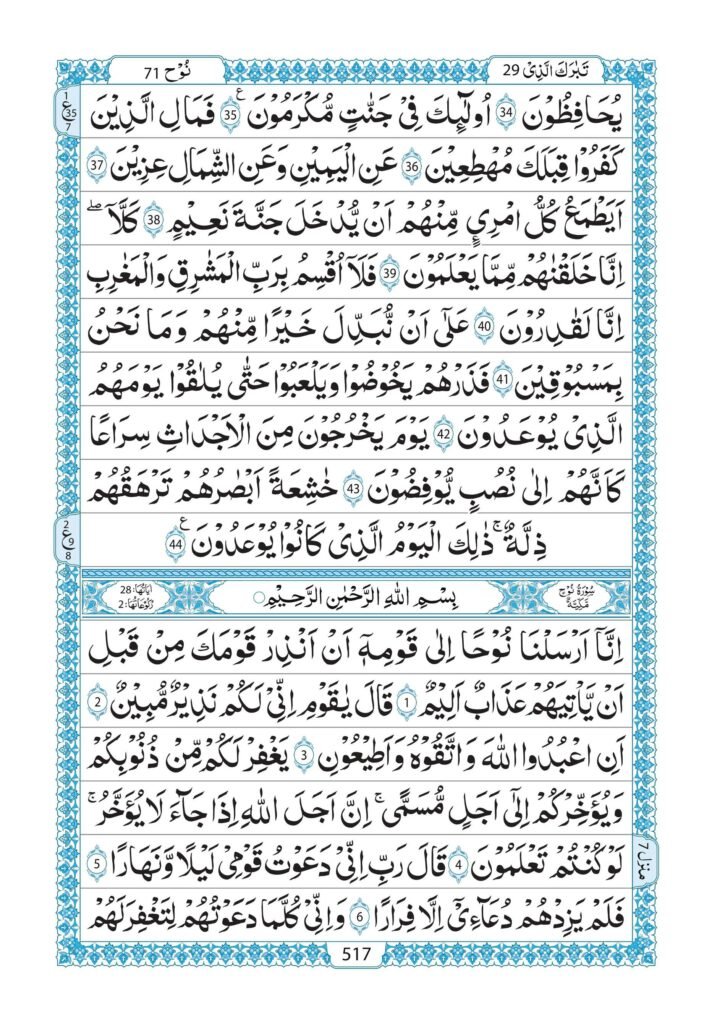 تَبٰرَكَ الَّذِىْ 29
نُوْح 71
يُحَافِظُوْنَ 34 اُولٰٓئِكَ فِىْ جَنّٰتٍ مُّكْرَمُوْنَ 35 ع فَمَالِ الَّذِيْنَ
1 ع 35 7
كَفَرُوْا قِبَلَكَ مُهْطِعِيْنَ 36 عَنِ الْيَمِيْنِ وَعَنِ الشِّمَالِ عِزِيْنَ 37
اَيَطْمَعُ كُلُّ امْرِئٍ مِّنْهُمْ اَنْ يُّدْخَلَ جَنَّةَ نَعِيْمٍ 38 كَلَّا ؕ
اِنَّا خَلَقْنٰهُمْ مِّمَّا يَعْلَمُوْنَ 39 فَلَاۤ اُقْسِمُ بِرَبِّ الْمَشٰرِقِ وَالْمَغٰرِبِ
اِنَّا لَقٰدِرُوْنَ 40 عَلٰٓى اَنْ نُّبَدِّلَ خَيْرًا مِّنْهُمْ وَمَا نَحْنُ
بِمَسْبُوْقِيْنَ 41 فَذَرْهُمْ يَخُوْضُوْا وَيَلْعَبُوْا حَتّٰى يُلٰقُوْا يَوْمَهُمُ
الَّذِىْ يُوْعَدُوْنَ 42 يَوْمَ يَخْرُجُوْنَ مِنَ الْاَجْدَاثِ سِرَاعًا
كَاَنَّهُمْ اِلٰى نُصُبٍ يُّوْفِضُوْنَ 43 خَاشِعَةً اَبْصَارُهُمْ تَرْهَقُهُمْ
ذِلَّةٌ ؕ ذٰلِكَ الْيَوْمُ الَّذِىْ كَانُوْا يُوْعَدُوْنَ 44 ع
2 ع 9 8
سُوْرَةُ نُوْحٍ مَّكِّيَّةٌ
بِسْمِ اللهِ الرَّحْمٰنِ الرَّحِيْمِ
اٰيَاتُهَا: 28 رُكُوْعَاتُهَا: 2
اِنَّاۤ اَرْسَلْنَا نُوْحًا اِلٰى قَوْمِهٖۤ اَنْ اَنْذِرْ قَوْمَكَ مِنْ قَبْلِ
اَنْ يَّاْتِيَهُمْ عَذَابٌ اَلِيْمٌ 1 قَالَ يٰقَوْمِ اِنِّىْ لَكُمْ نَذِيْرٌ مُّبِيْنٌ 2
اَنِ اعْبُدُوا اللهَ وَاتَّقُوْهُ وَاَطِيْعُوْنِ 3 يَغْفِرْ لَكُمْ مِّنْ ذُنُوْبِكُمْ
وَيُؤَخِّرْكُمْ اِلٰٓى اَجَلٍ مُّسَمًّى ؕ اِنَّ اَجَلَ اللهِ اِذَا جَآءَ لَا يُؤَخَّرُ ۘ
لَوْ كُنْتُمْ تَعْلَمُوْنَ 4 قَالَ رَبِّ اِنِّىْ دَعَوْتُ قَوْمِىْ لَيْلًا وَّنَهَارًا 5
منزل 7
فَلَمْ يَزِدْهُمْ دُعَآءِىْۤ اِلَّا فِرَارًا 6 وَاِنِّىْ كُلَّمَا دَعَوْتُهُمْ لِتَغْفِرَ لَهُمْ
517